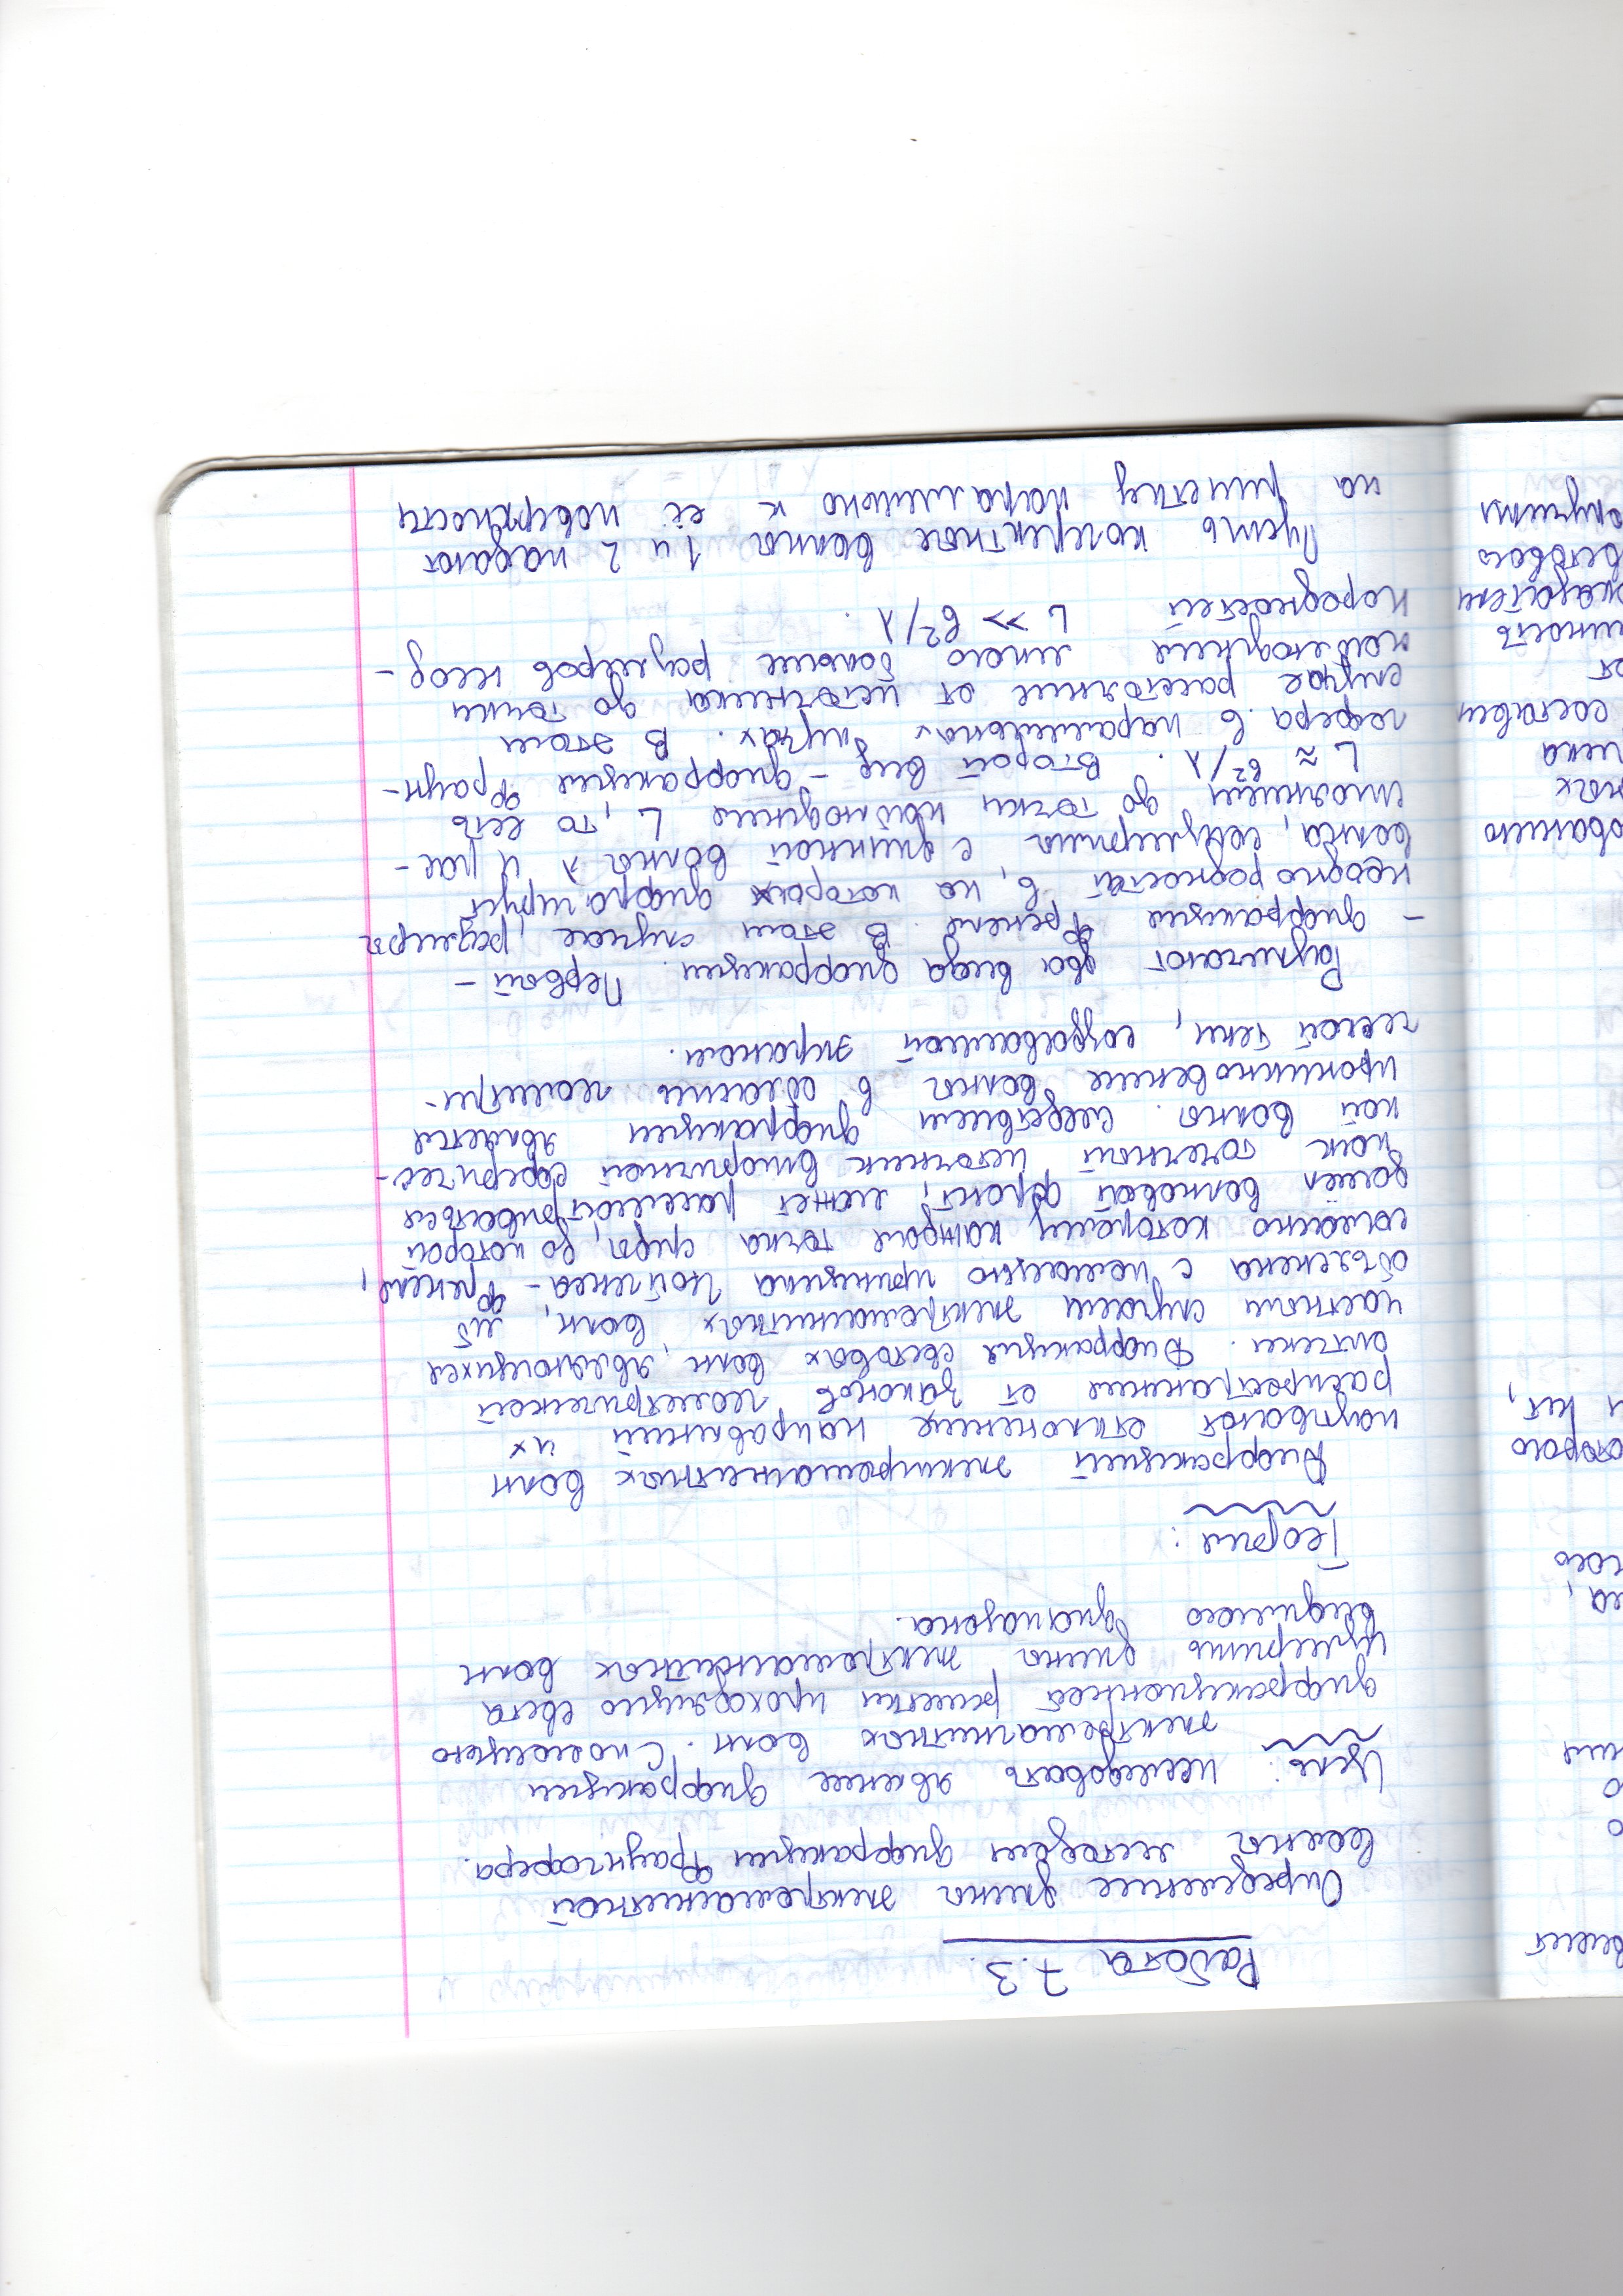 Работа 7.3.
Определение длины электромагнитной
волны методом дифракции Фраунгофера.
Цель: исследовать явление дифракции
электромагнитных волн. С помощью
дифракционной решетки проходящего света
измерить длины электромагнитных волн
видимого диапазона.
Теория:
Дифракцией электромагнитных волн
называют отклонение направлений их
распространения от законов геометрической
оптики. Дифракция световых волн, являющихся
частным случаем электромагнитных волн, мб
объяснена с помощью принципа Гюйгенса - Френеля,
согласно которому каждая точка среды, до которой
дошёл волновой фронт, может рассматриваться
как точечный источник вторичной сферичес-
кой волны. Следствием дифракции является
проникновение волны в область геометри-
ческой тени, создаваемой экраном.
Различают два вида дифракции. Первый -
- дифракция Френеля. В этом случае, размеры
неоднородностей b, на которых дифрагирует
волна, соизмеримы с длинной волны λ и рас-
стоянием до точки наблюдения L, то есть
L ≈ b²/λ. Второй вид - дифракция Фраун-
гофера в параллельных лучах. В этом
случае расстояние от источника до точки
наблюдения много больше размеров неод-
нородностей L >> b²/λ.
Пусть когерентные волны 1 и 2 падают
на решетку параллельно к её поверхности
вает
о
о
ния
ла,
ного
оторого
и нет,
ованию
ных
ника
составен
от
шность
оказатели
ветового
олучить